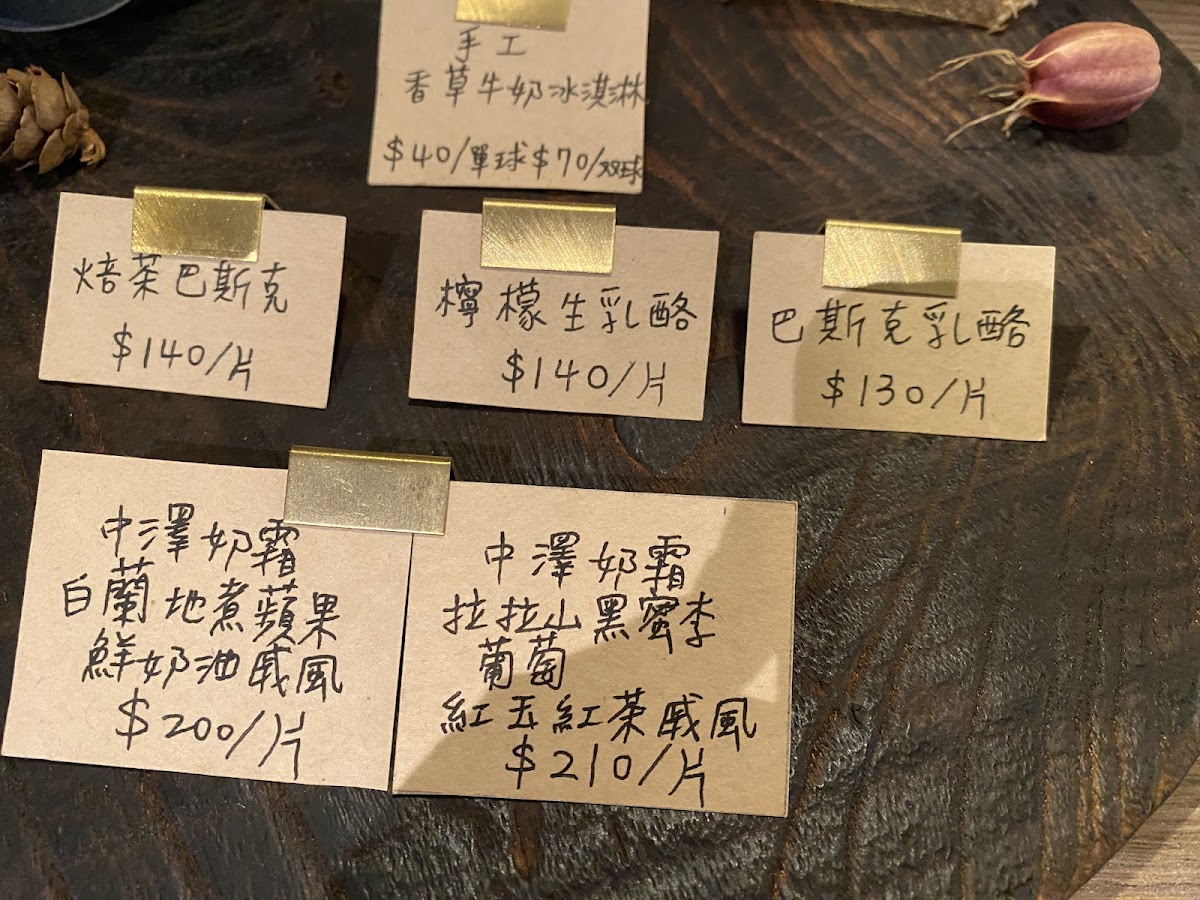 手工
香草牛奶冰淇淋
$40/單球 $70/双球
焙茶巴斯克
$140/片
檸檬生乳酪
$140/片
巴斯克乳酪
$130/片
中澤奶霜
白蘭地煮蘋果
鮮奶油戚風
$200/片
中澤奶霜
拉拉山黑蜜李
葡萄
紅玉紅茶戚風
$210/片